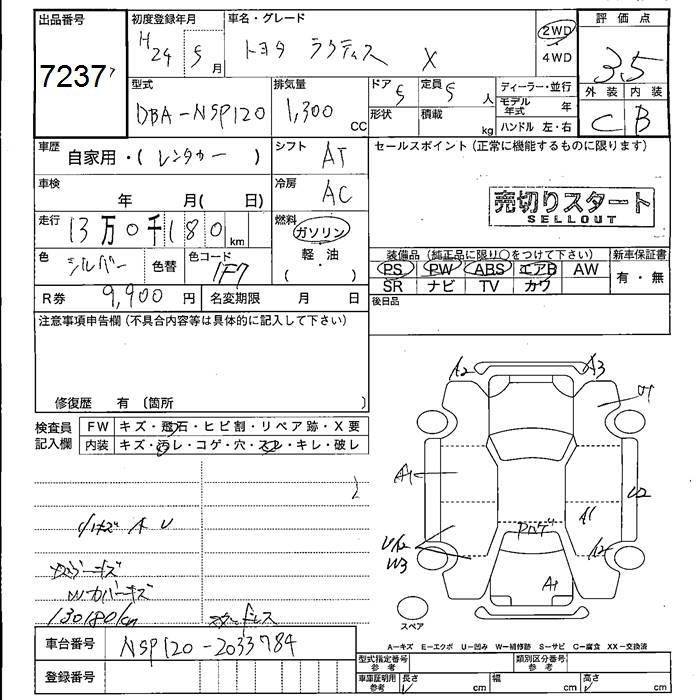 出品番号
7237
初度登録年月
H24 5月
車名・グレード
トヨタ ラクティス X
2WD
4WD
評価点
3.5
外装 内装
C B
型式
DBA-NSP120
排気量
1,300 CC
ドア 5
定員 5人
形状
積載 kg
ディーラー・並行
モデル年式 年
ハンドル 左・右
車歴
自家用・( レンタカー )
シフト
AT
セールスポイント (正常に機能するものに限ります)
売切りスタート
SELLOUT
車検
年 月( 日)
冷房
AC
走行
13万0千180km
燃料
ガソリン
軽・油
( )
色
シルバー
色替
色コード
1F7
装備品 (純正品に限り○をつけて下さい)
PS PW ABS エアB AW
SR ナビ TV カワ
新車保証書
有・無
R券
9,900円
名変期限 月 日
後日品
注意事項申告欄 (不具合内容等は具体的に記入して下さい)
修復歴 有〔箇所 〕
検査員記入欄
FW キズ・飛石・ヒビ割・リペア跡・X要
内装 キズ・汚レ・コゲ・穴・スレ・キレ・破レ
A2
A3
U1
A1
U2
A1
U2
W3
A2
A1
スペア
A U
130180km
車台番号
NSP120-2033784
登録番号
A-キズ E-エクボ U-凹み W-補修跡 S-サビ C-腐食 XX-交換済
型式指定番号参考
類別区分番号参考
車庫証明用参考
長さ cm
幅 cm
高さ cm